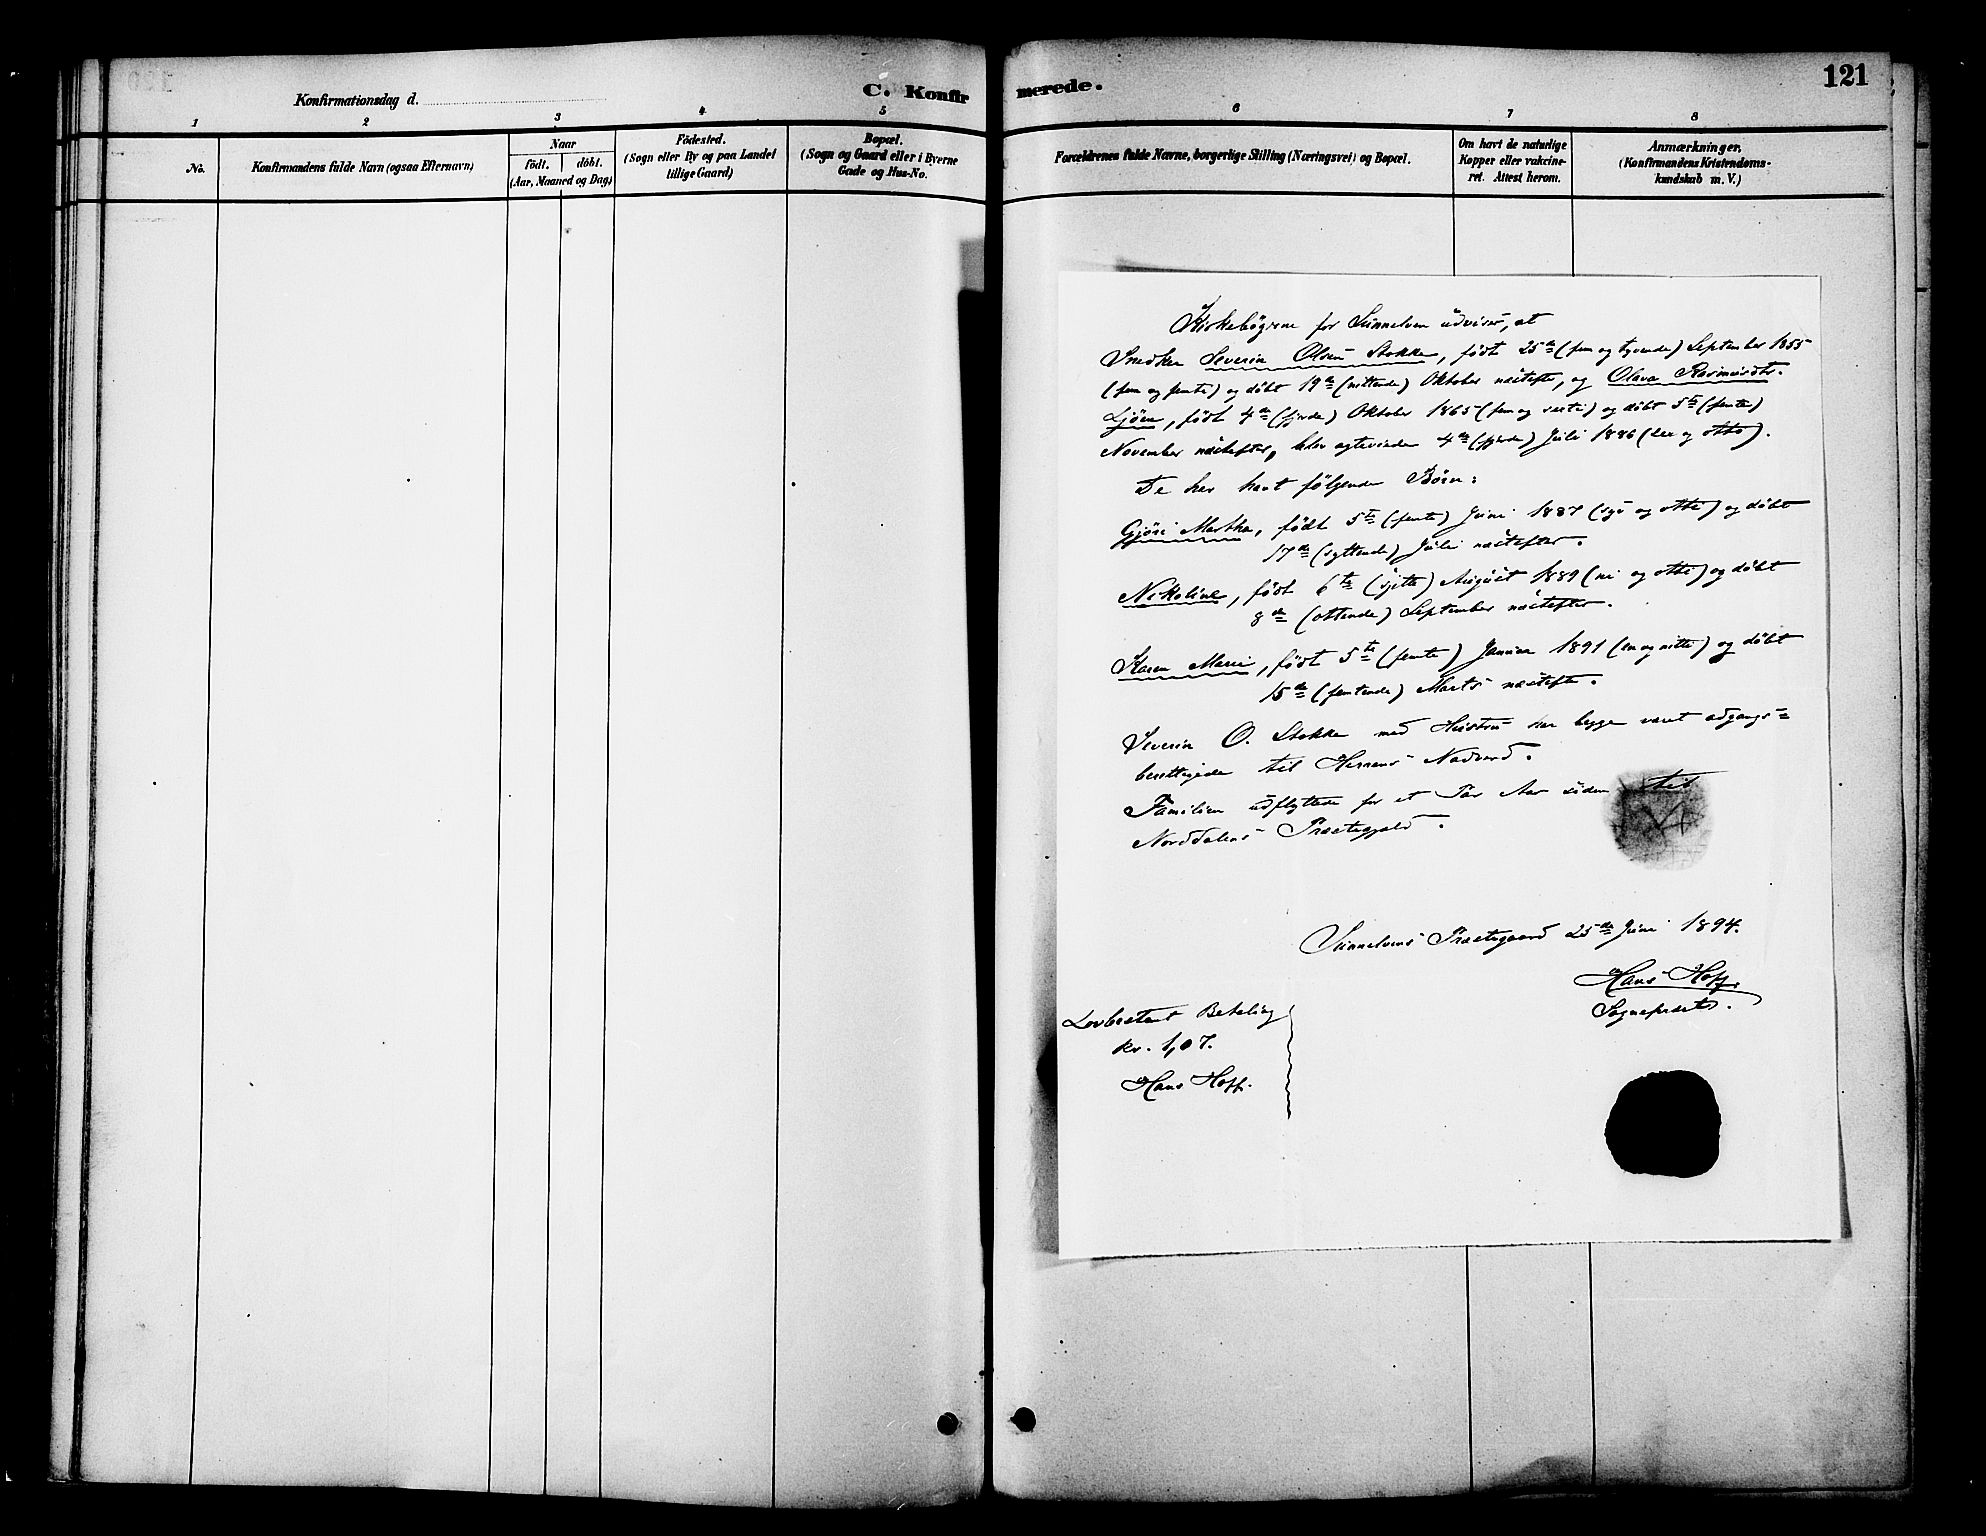 C. Konfirmerede.
121
Konfirmationsdag d.
1 2 3 4 5 6 7 8
No.
Konfirmandens fulde Navn (ogsaa Efternavn)
Naar
födt. döbt.
(Aar, Maaned og Dag)
Födested.
(Sogn eller By og paa Landet
tillige Gaard)
Bopæl.
(Sogn og Gaard eller i Byerne
Gade og Hus-No.
Forældrenes fulde Navne, borgerlige Stilling (Næringsvei) og Bopæl.
Om havt de naturlige
Kopper eller vakcine-
ret. Attest herom.
Anmærkninger,
(Konfirmandens Kristendoms-
kundskab m. V.)
Kirkebøgerne for Sunnelven udviser, at
Snedker Severin Olsen Stokke, født 25de (fem og tyvende) September 1855
(fem og femti) og døbt 19de (nittende) Oktober næstefter, og Olava Rasmusdtr.
Ljøen, født 4de (fjerde) Oktober 1865 (fem og sexti) og døbt 5te (femte)
November næstefter, blev egteviede 4de (fjerde) Juli 1886 (sex og otti).
De har havt følgende Børn:
Gjøri Martha, født 5te (femte) Juni 1887 (syv og otti) og døbt
17de (syttende) Juli næstefter.
Nikoline, født 6te (sjette) August 1889 (ni og otti) og døbt
8de (ottende) September næstefter.
Karen Marie, født 5te (femte) Januar 1891 (en og nitti) og døbt
15de (femtende) Marts næstefter.
Severin O. Stokke med Hustru har begge været adgangs=
berettigede til Herrens Nadverd.
Familien udflyttede for et Par Aar siden til
Norddalens Præstegjeld.
Sunnelvens Præstegaard 25de Juni 1894.
Hans Hoff.
Sognepræst.
Lovbestemt Betaling
Kr. 1,07.
Hans Hoff.